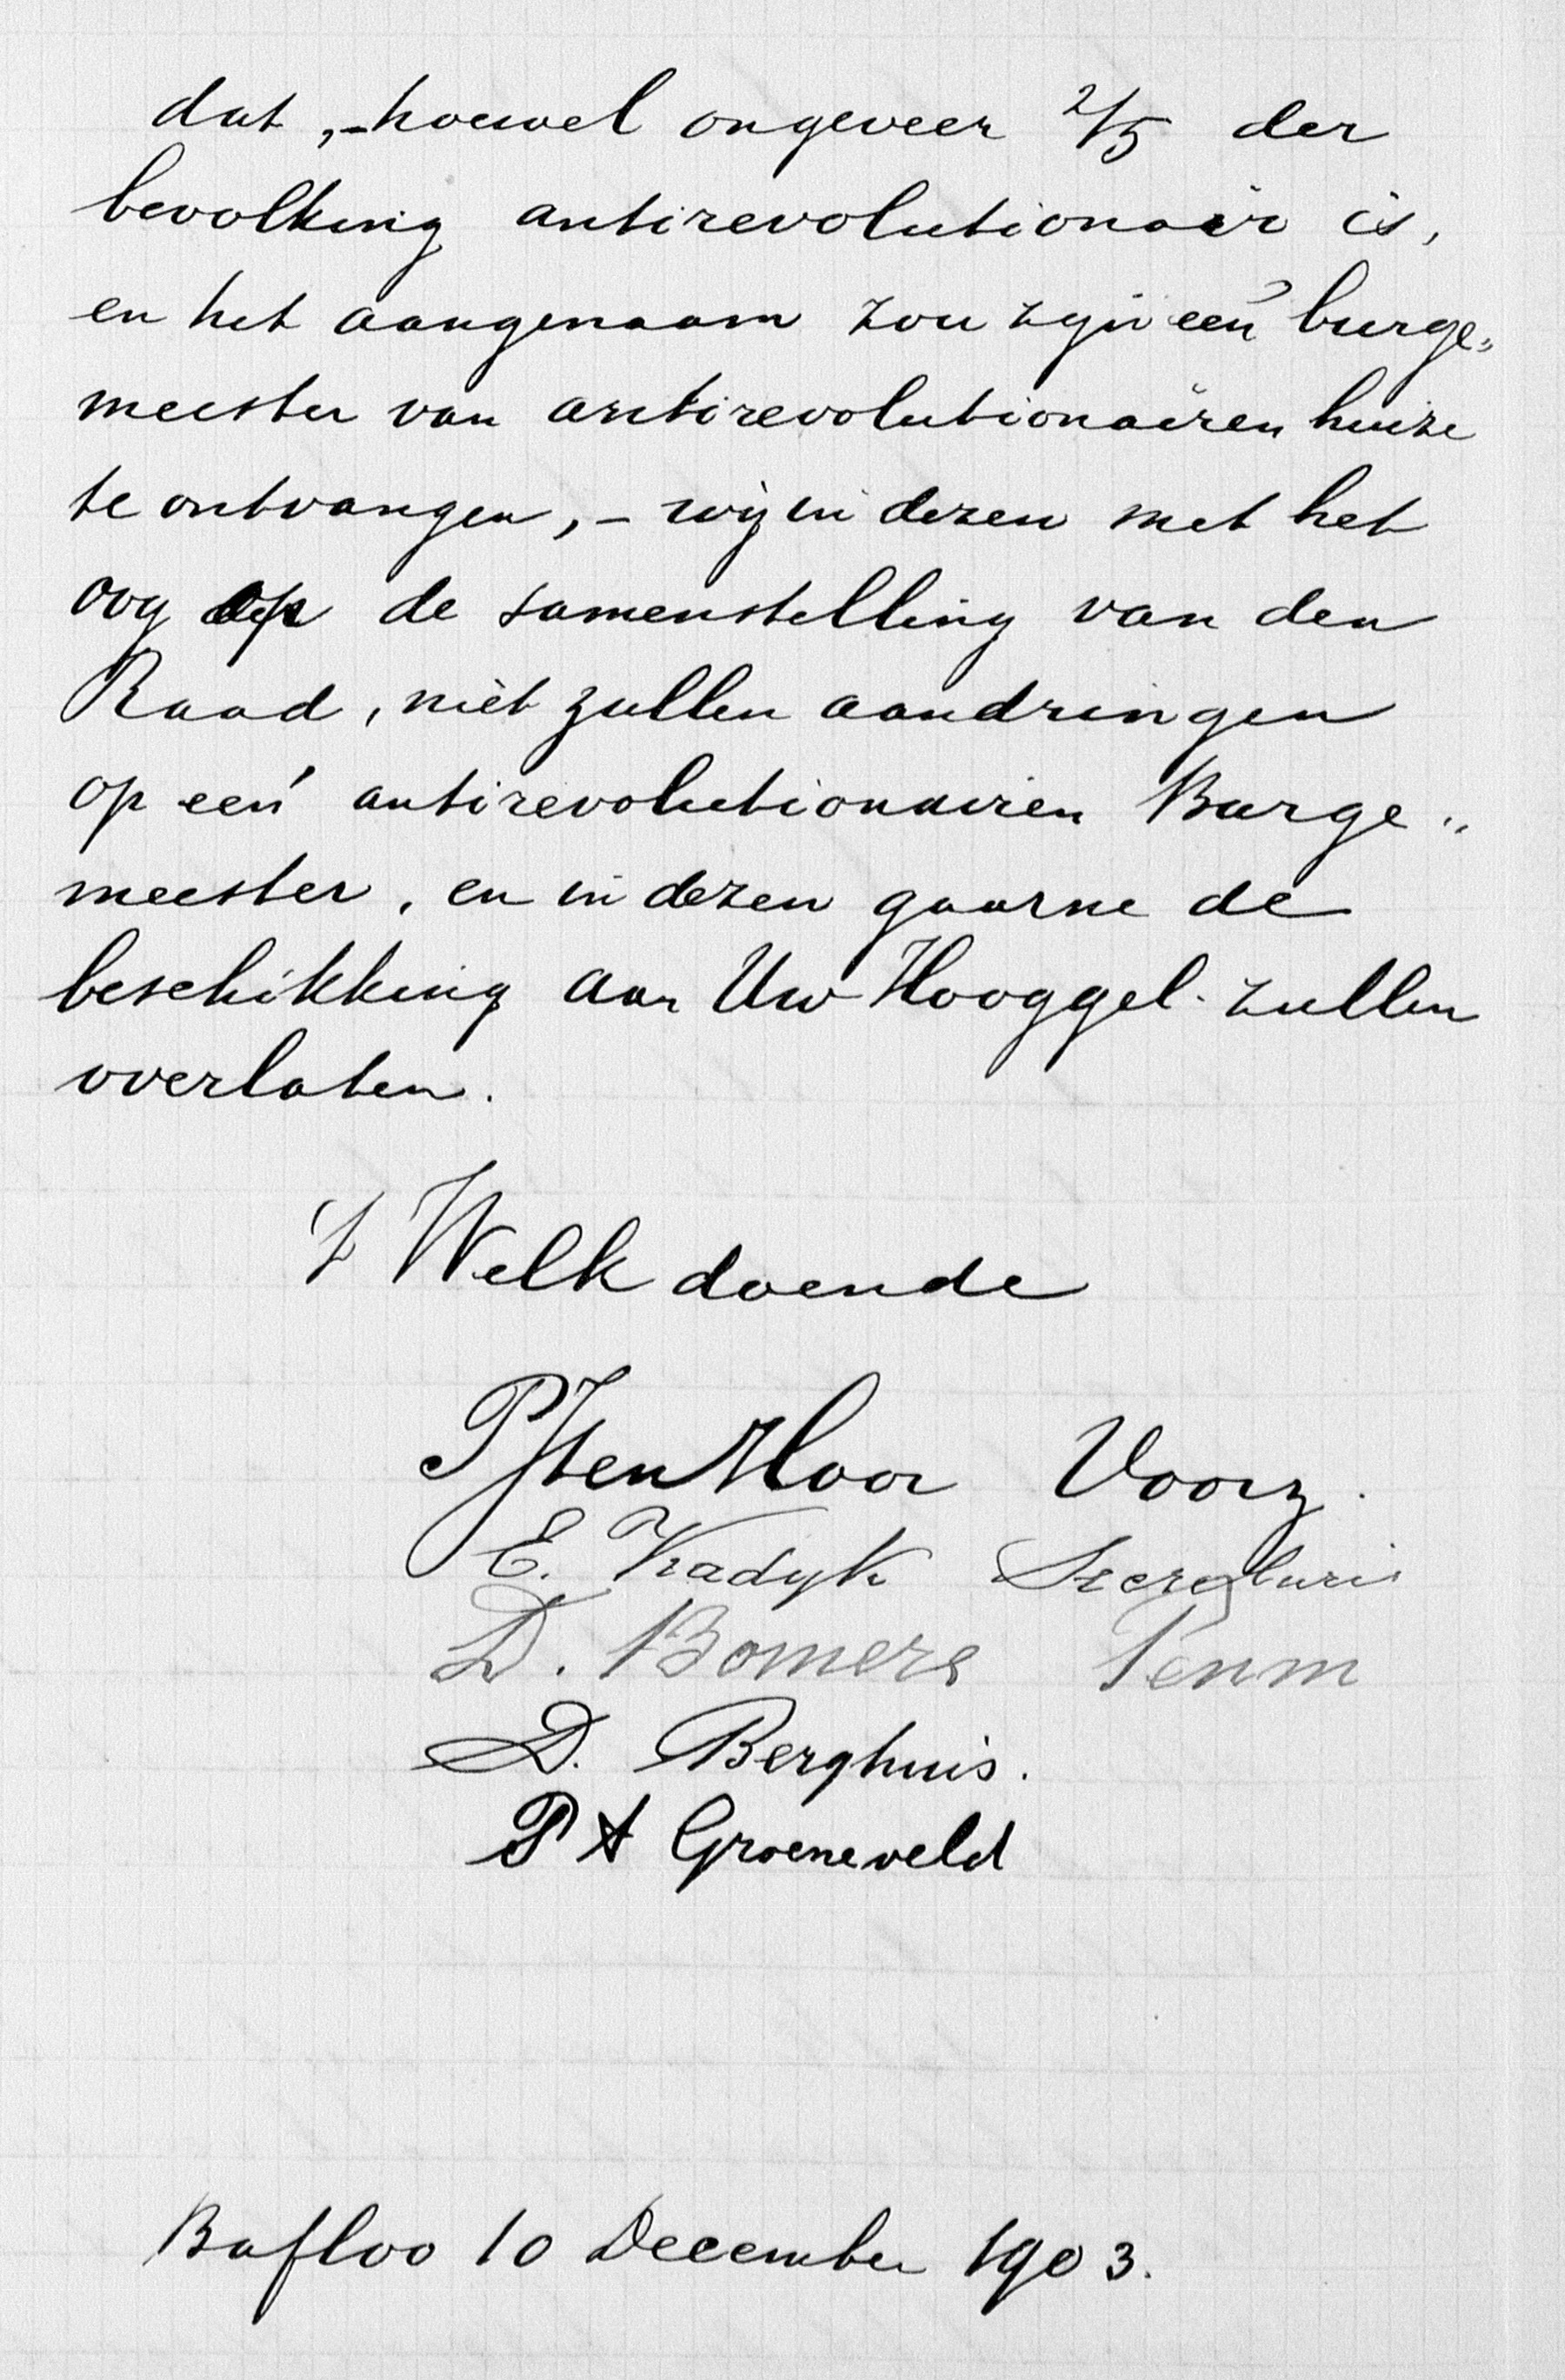 dat, - hoewel ongeveer 2/5 der
bevolking antirevolutionair is,
en het aangenaam zou zijn een burge=
meester van antirevolutionairen huize
te ontvangen, - wij in dezen met het
oog op de samenstelling van den
Raad, niet zullen aandringen
op een antirevolutionairen Burge=
meester, en in dezen gaarne de
beschikking aan Uw Hooggel. zullen
overlaten.
't Welk doende
P J ten Hoor Voorz.
E. Kadyk Secretaris
D. Bomers Penm
D. Berghuis.
P A Groeneveld
Bafloo 10 December 1903.